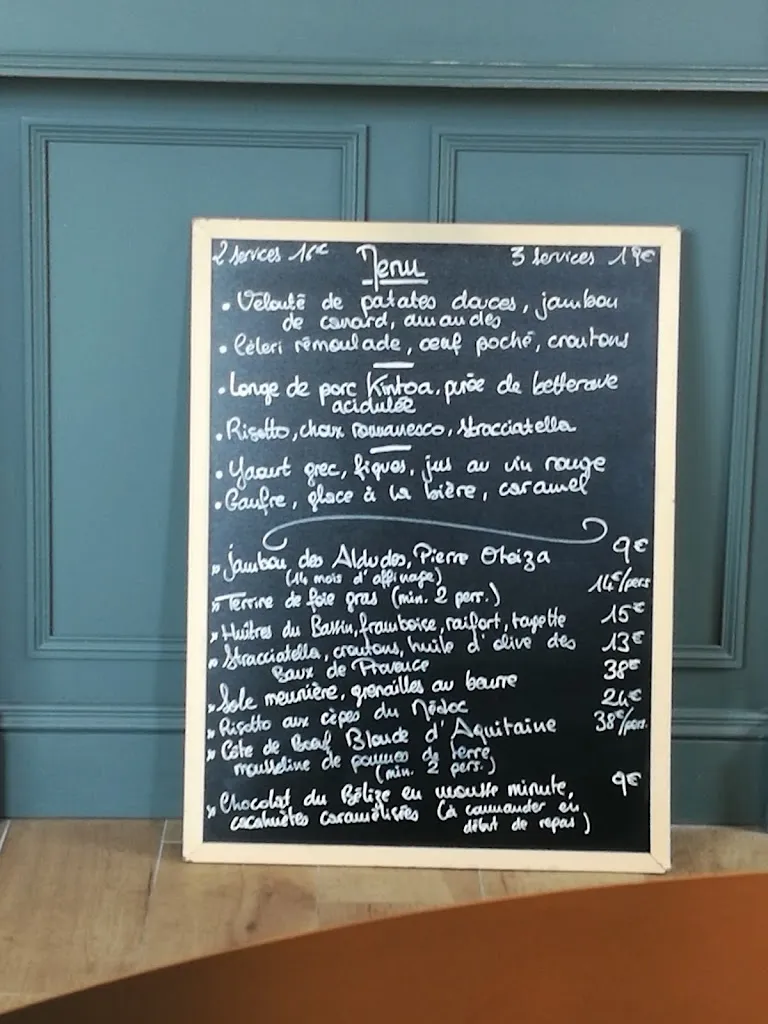 2 services 16€ Menu 3 services 19€
• Velouté de patates douces, jambon
de canard, amandes
• Céleri rémoulade, œuf poché, croutons
• Longe de porc Kintoa, purée de betterave
acidulée
• Risotto, choux romanesco, stracciatella
• Yaourt grec, figues, jus au vin rouge
• Gaufre, glace à la bière, caramel
» Jambon des Aldudes, Pierre Oteiza 9€
(14 mois d'affinage)
» Terrine de foie gras (min. 2 pers.) 14€/pers
» Huîtres du Bassin, framboise, raifort, tagette 15€
» Stracciatella, croutons, huile d'olive des 13€
Baux de Provence
» Sole meunière, grenailles au beurre 38€
» Risotto aux cèpes du Médoc 24€
» Côte de Bœuf Blonde d'Aquitaine 38€/pers.
mousseline de pommes de terre
(min. 2 pers.)
» Chocolat du Bélize en mousse minute, 9€
cacahuètes caramélisées (à commander en
début de repas)